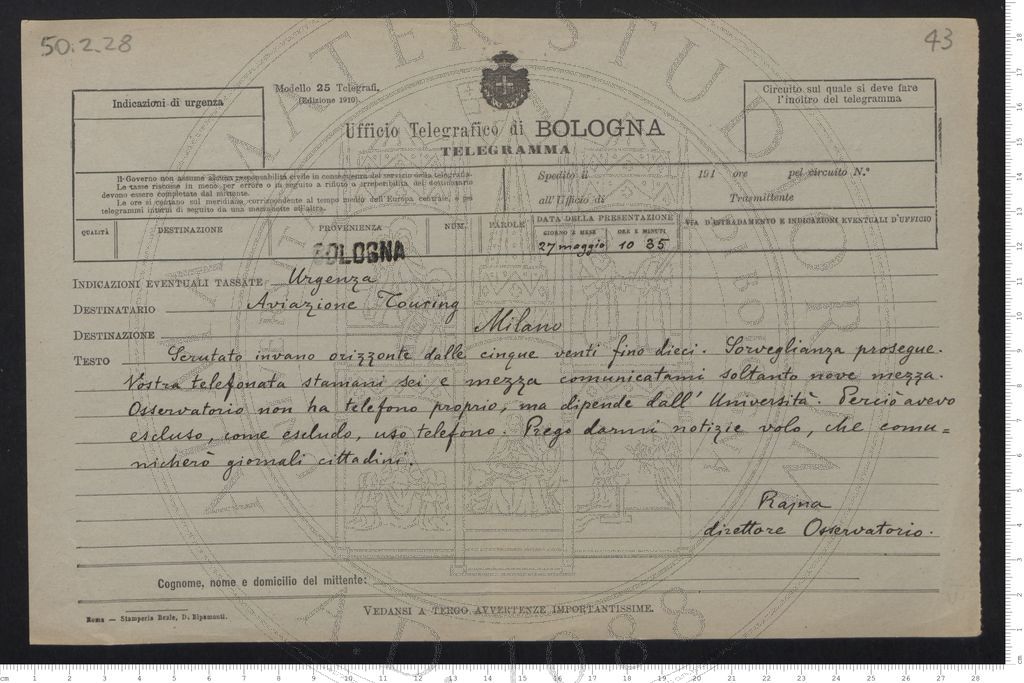 50.2.28
43
Indicazioni di urgenza
Modello 25 Telegrafi.
(Edizione 1910)
Circuito sul quale si deve fare
l'inoltro del telegramma
Ufficio Telegrafico di BOLOGNA
TELEGRAMMA
Il Governo non assume alcuna responsabilità civile in conseguenza del servizio della telegrafia.
Le tasse riscosse in meno per errore o in seguito a rifiuto o irreperibilità del destinatario
devono essere completate dal mittente.
Le ore si contano sul meridiano corrispondente al tempo medio dell'Europa centrale, e pei
telegrammi interni di seguito da una mezzanotte all'altra.
Spedito il 191 ore pel circuito N.°
all'Ufficio di Trasmittente
QUALITÀ DESTINAZIONE PROVENIENZA NUM. PAROLE DATA DELLA PRESENTAZIONE VIA D'ISTRADAMENTO E INDICAZIONI EVENTUALI D'UFFICIO
GIORNO E MESE ORE E MINUTI
BOLOGNA 27 maggio 10 35
INDICAZIONI EVENTUALI TASSATE Urgenza
DESTINATARIO Aviazione Touring
DESTINAZIONE Milano
TESTO Scrutato invano orizzonte dalle cinque venti fino dieci. Sorveglianza prosegue.
Vostra telefonata stamani sei e mezza comunicatami soltanto nove mezza.
Osservatorio non ha telefono proprio, ma dipende dall' Università. Perciò avevo
escluso, come escludo, uso telefono. Prego darmi notizie volo, che comu=
nicherò giornali cittadini.
Rajna
direttore Osservatorio.
Cognome, nome e domicilio del mittente:
VEDANSI A TERGO AVVERTENZE IMPORTANTISSIME.
Roma — Stamperia Reale, D. Ripamonti.